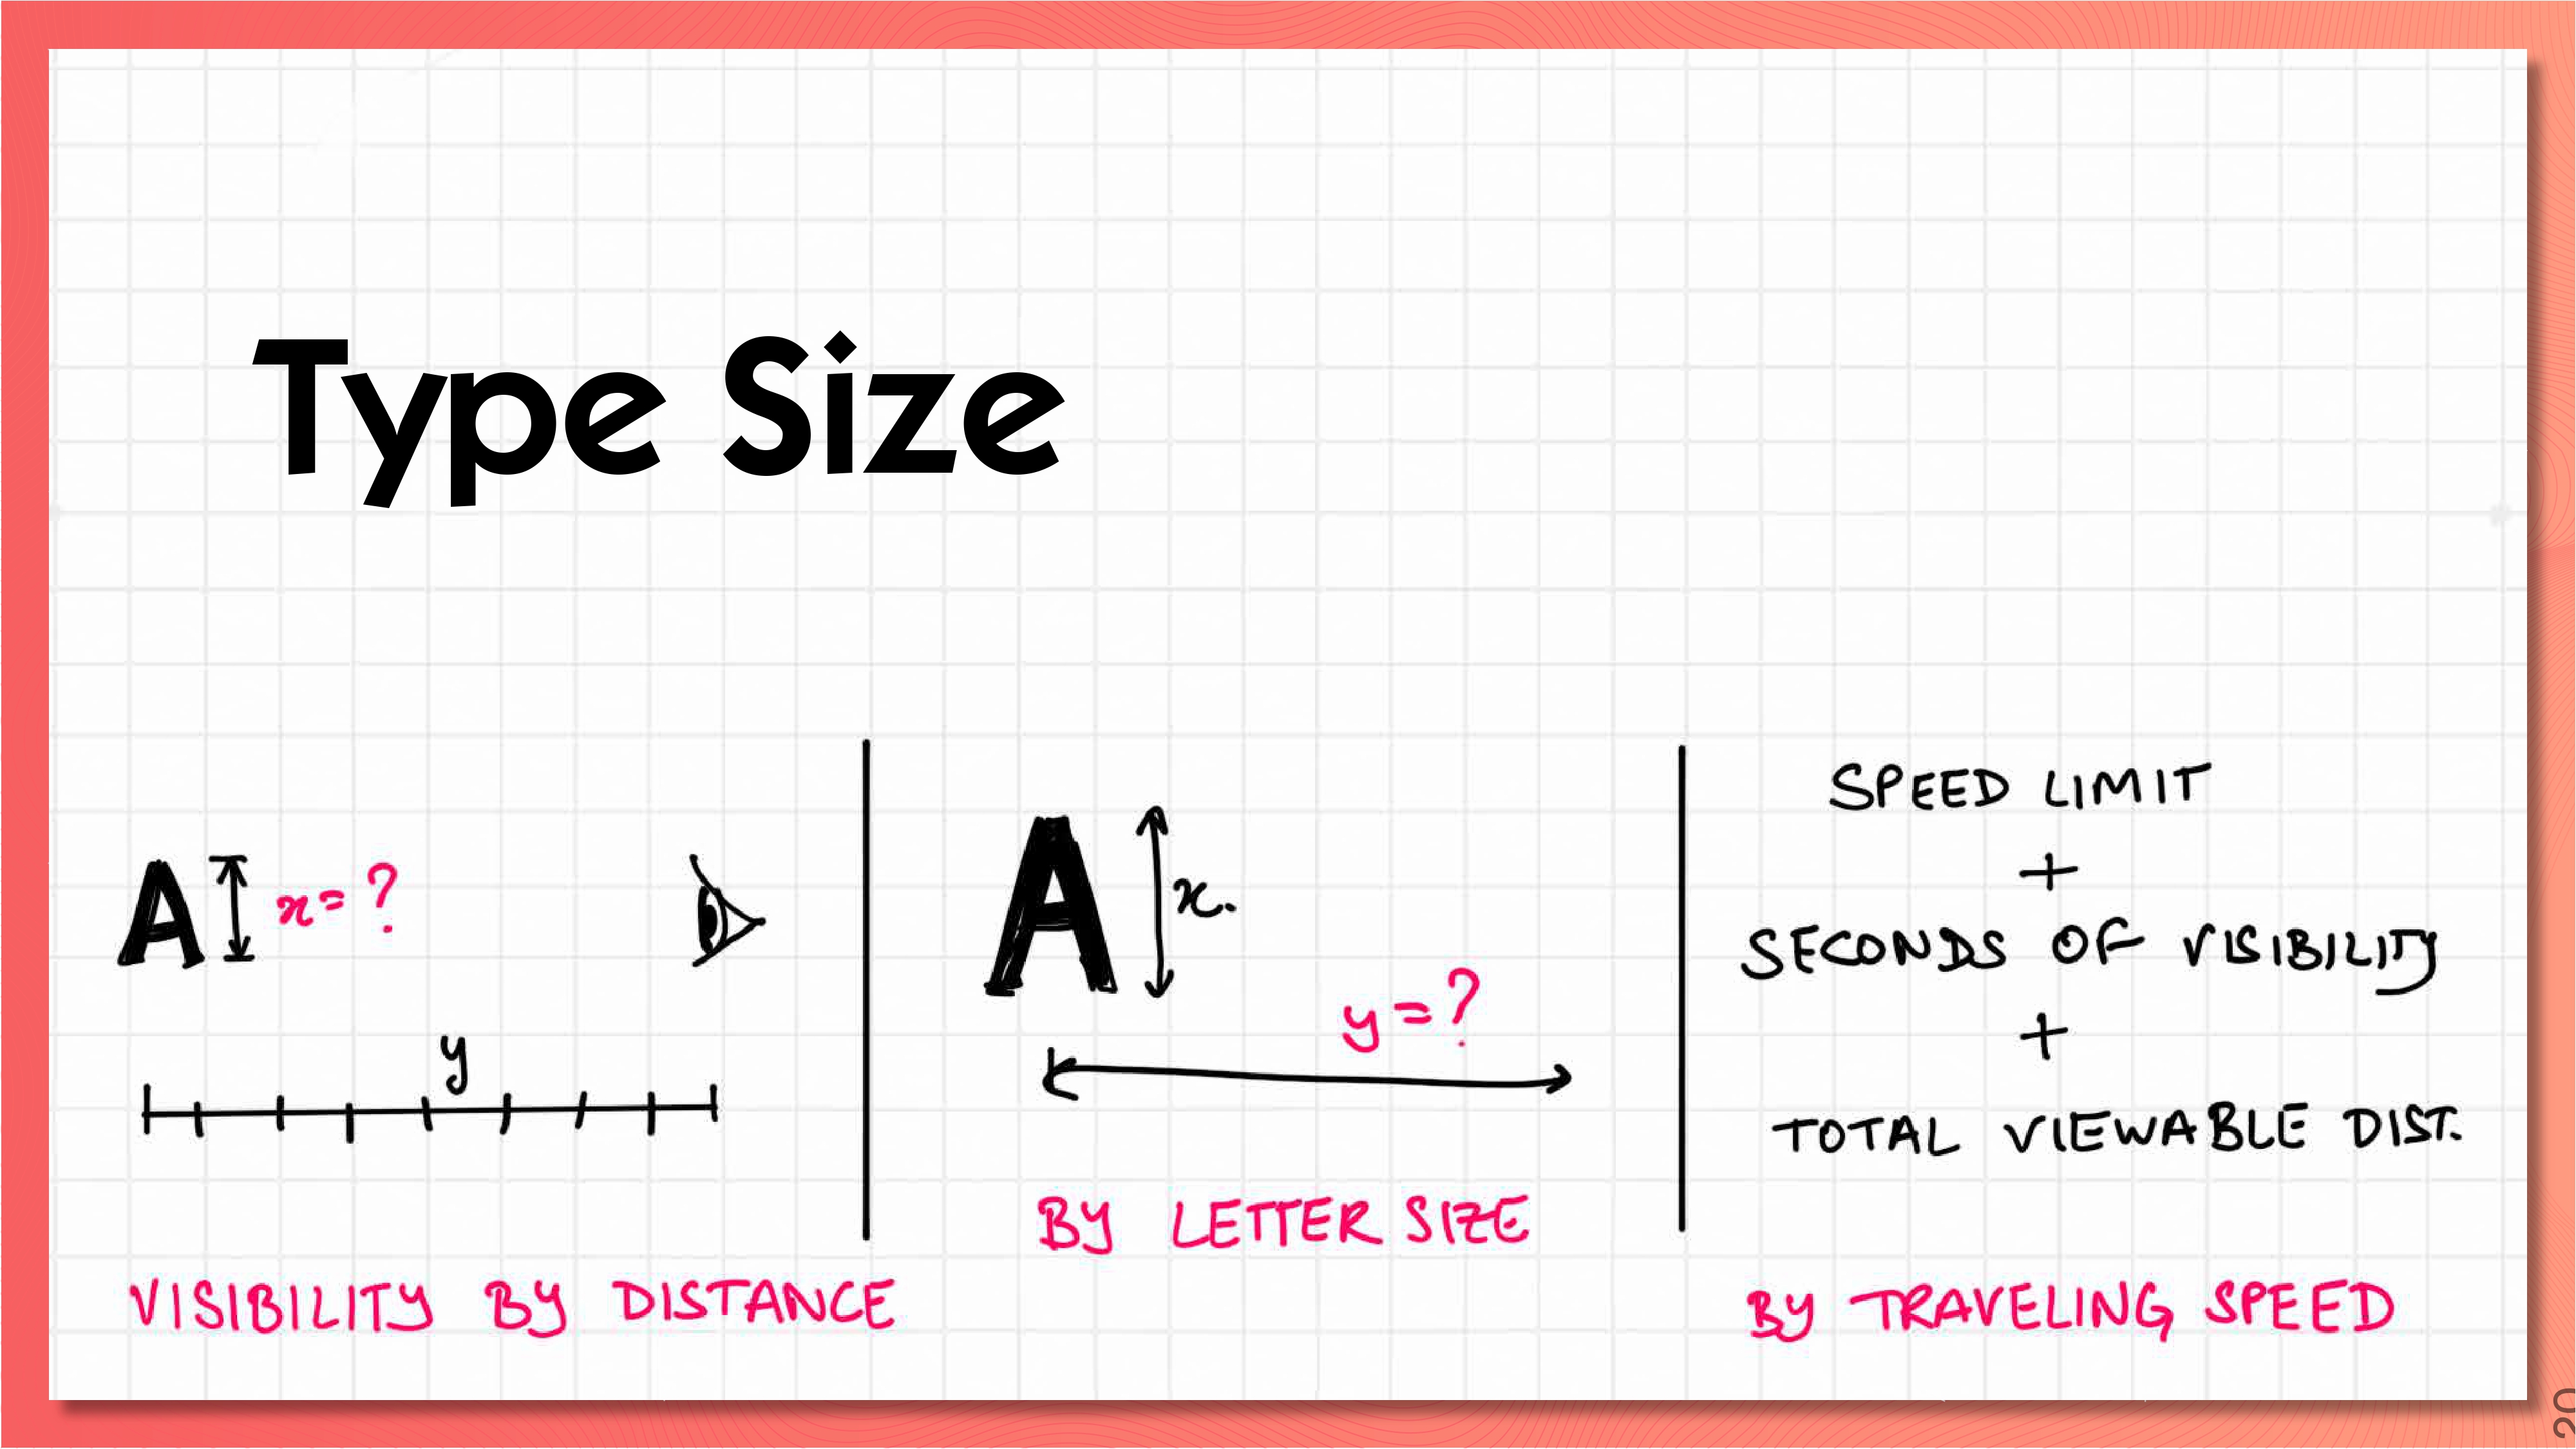 Type Size
A x = ?
y
VISIBILITY BY DISTANCE
A x.
y = ?
BY LETTER SIZE
SPEED LIMIT
+
SECONDS OF VISIBILITY
+
TOTAL VIEWABLE DIST.
BY TRAVELING SPEED
20